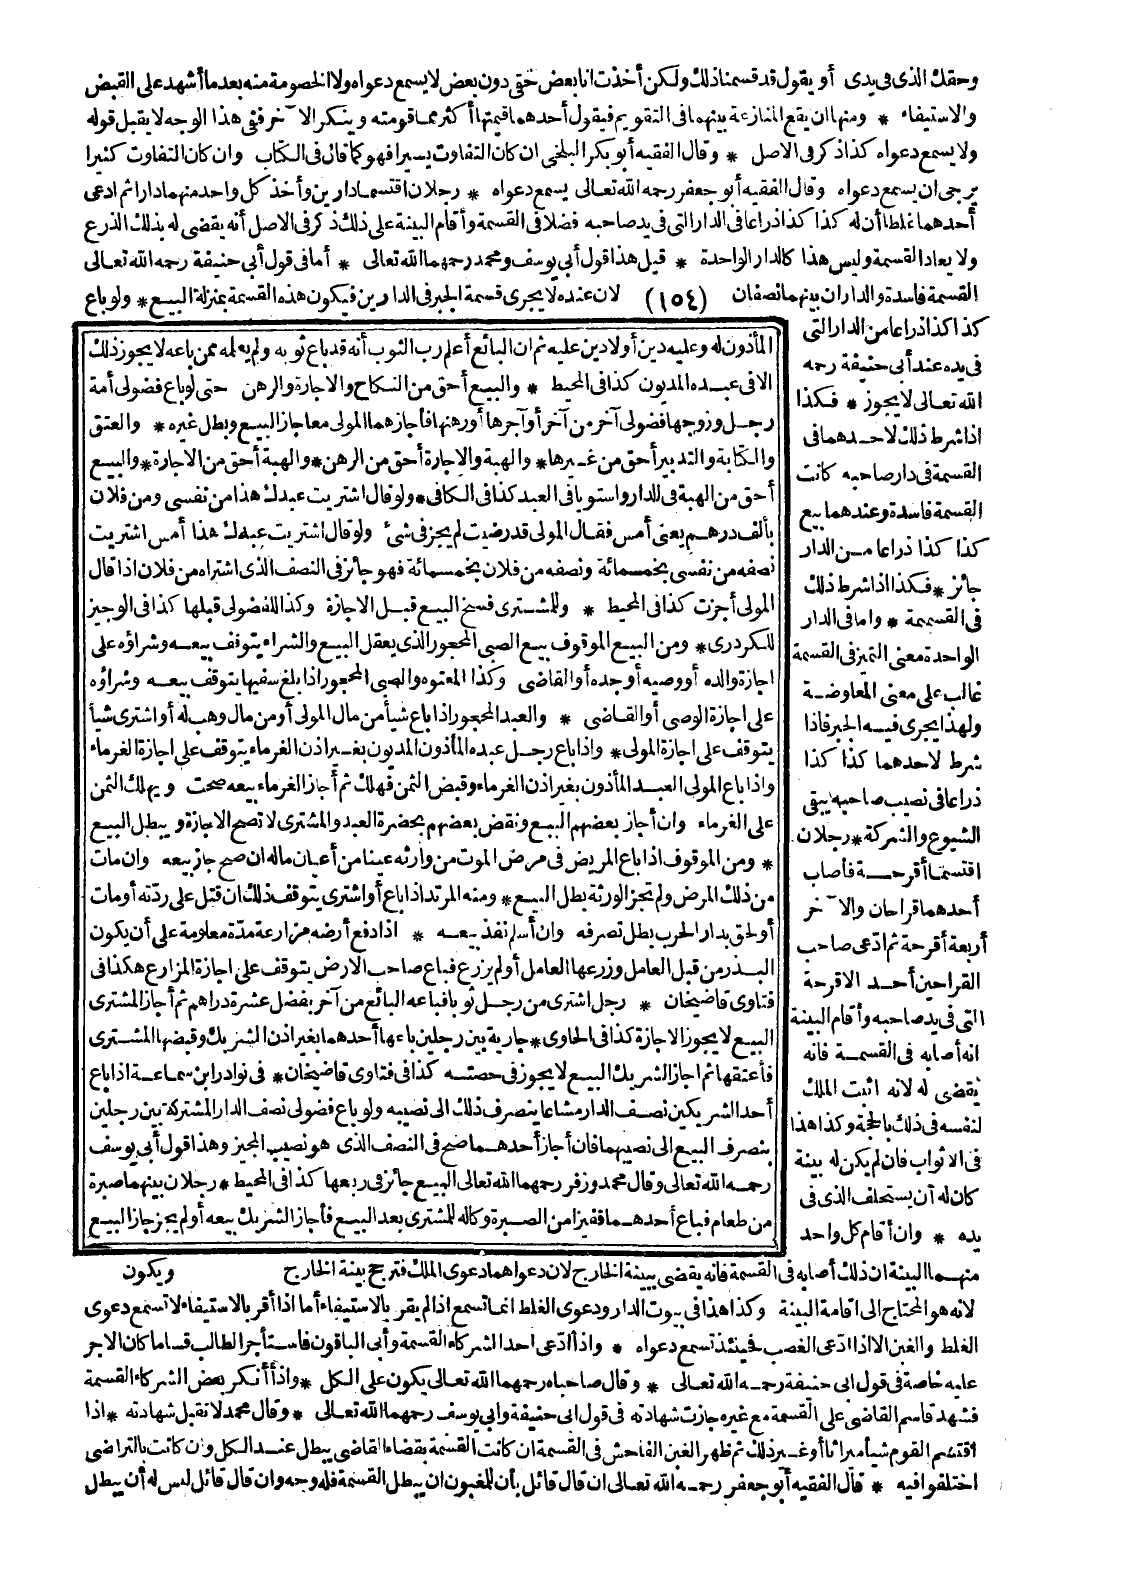 وحقك الذى فى يدى أو يقول قد قسمنا ذلك ولكن أخذت انا بعض حقى دون بعض لا يسمع دعواه ولا الخصومة منه بعد ما أشهد على القبض
والاستيفاء * ومنها ان يقع المنازعة بينهما فى التقويم فيقول أحدهما قيمتها أكثر مما قومته وينكر الآخر ففى هذا الوجه لا يقبل قوله
ولا يسمع دعواه كذا ذكر فى الاصل * وقال الفقيه أبو بكر البلخى ان كان التفاوت يسيرا فهو كما قال فى الكتاب وان كان التفاوت كثيرا
يرجى ان يسمع دعواه وقال الفقيه أبو جعفر رحمه الله تعالى يسمع دعواه * رجلان اقتسما دارين وأخذ كل واحد منهما دارا ثم ادعى
أحدهما غلطا أن له كذا كذا ذراعا فى الدار التى فى يد صاحبه فضلا فى القسمة وأقام البينة على ذلك ذكر فى الاصل أنه يقضى له بذلك الذرع
ولا يعاد القسمة وليس هذا كالدار الواحدة * قيل هذا قول أبى يوسف ومحمد رحمهما الله تعالى * أما فى قول أبى حنيفة رحمه الله تعالى
القسمة فاسدة والداران بينهما نصفان (١٥٤) لان عنده لا يجرى قسمة الجبر فى الدارين فيكون هذه القسمة بمنزلة البيع * ولو باع
كذا كذا ذراعا من الدار التى
فى يده عند أبى حنيفة رحمه
الله تعالى لا يجوز * فكذا
اذا شرط ذلك لاحدهما فى
القسمة فى دار صاحبه كانت
القسمة فاسدة وعندهما بيع
كذا كذا ذراعا من الدار
جائز * فكذا اذا شرط ذلك
فى القسمة * واما فى الدار
الواحدة معنى التميز فى القسمة
غالب على معنى المعاوضة
ولهذا يجرى فيه الجبر فاذا
شرط لاحدهما كذا كذا
ذراعا فى نصيب صاحبه يبقى
الشيوع والشركة * رجلان
اقتسما أقرحة فأصاب
أحدهما قراحان والآخر
أربعة أقرحة ثم ادعى صاحب
القراحين أحد الاقرحة
التى فى يد صاحبه وأقام البينة
انه أصابه فى القسمة فانه
يقضى له لانه اثبت الملك
لنفسه فى ذلك بالحجة وكذا هذا
فى الاثواب فان لم يكن له بينة
كان له أن يستحلف الذى فى
يده * وان أقام كل واحد
المأذون له وعليه دين أولا دين عليه ثم ان البائع أعلم رب الثوب أنه قد باع ثوبه ولم يعلمه ممن باعه لا يجوز ذلك
الا فى عبده المديون كذا فى المحيط * والبيع أحق من النكاح والاجارة والرهن حتى لو باع فضولى أمة
رجل وزوجها فضولى آخر من آخر أو آجرها أو رهنها فأجازهما المولى معا جاز البيع وبطل غيره * والعتق
والكتابة والتدبير أحق من غيرها * والهبة والاجارة أحق من الرهن * والهبة أحق من الاجارة * والبيع
أحق من الهبة فى الدار واستويا فى العبد كذا فى الكافى * ولو قال اشتريت عبدك هذا من نفسى ومن فلان
بألف درهم يعنى أمس فقال المولى قد رضيت لم يجز فى شئ ولو قال اشتريت عبدك هذا أمس اشتريت
نصفه من نفسى بخمسمائة ونصفه من فلان بخمسمائة فهو جائز فى النصف الذى اشتراه من فلان اذا قال
المولى أجزت كذا فى المحيط * وللمشترى فسخ البيع قبل الاجازة وكذا للفضولى قبلها كذا فى الوجيز
للكردرى * ومن البيع الموقوف بيع الصبى المحجور الذى يعقل البيع والشراء يتوقف بيعه وشراؤه على
اجازة والده أو وصيه أو جده أو القاضى وكذا المعتوه والصبى المحجور اذا بلغ سفيها يتوقف بيعه وشراؤه
على اجازة الوصى أو القاضى * والعبد المحجور اذا باع شيأ من مال المولى أو من مال وهب له أو اشترى شيأ
يتوقف على اجازة المولى * واذا باع رجل عبده المأذون المديون بغير اذن الغرماء يتوقف على اجازة الغرماء
واذا باع المولى العبد المأذون بغير اذن الغرماء وقبض الثمن فهلك ثم أجاز الغرماء بيعه صحت ويهلك الثمن
على الغرماء وان أجاز بعضهم البيع ونقض بعضهم بحضرة العبد والمشترى لا تصح الاجازة ويبطل البيع
* ومن الموقوف اذا باع المريض فى مرض الموت من وارثه عينا من أعيان ماله ان صح جاز بيعه وان مات
من ذلك المرض ولم تجز الورثة بطل البيع * ومنه المرتد اذا باع أو اشترى يتوقف ذلك ان قتل على ردته أو مات
أو لحق بدار الحرب بطل تصرفه وان أسلم نفذ بيعه * اذا دفع أرضه مزارعة مدة معلومة على أن يكون
البذر من قبل العامل وزرعها العامل أولم يزرع فباع صاحب الارض يتوقف على اجازة المزارع هكذا فى
فتاوى قاضيخان * رجل اشترى من رجل ثوبا فباعه البائع من آخر بفضل عشرة دراهم ثم أجاز المشترى
البيع لا يجوز الاجازة كذا فى الحاوى * جارية بين رجلين باعها أحدهما بغير اذن الشريك وقبضها المشترى
فأعتقها ثم اجاز الشريك البيع لا يجوز فى حصته كذا فى فتاوى قاضيخان * فى نوادر ابن سماعة اذا باع
أحد الشريكين نصف الدار مشاعا ينصرف ذلك الى نصيبه ولو باع فضولى نصف الدار المشتركة بين رجلين
ينصرف البيع الى نصيبهما فان أجاز أحدهما صح فى النصف الذى هو نصيب المجيز وهذا قول أبى يوسف
رحمه الله تعالى وقال محمد وزفر رحمهما الله تعالى البيع جائز فى ربعها كذا فى المحيط * رجلان بينهما صبرة
من طعام فباع أحدهما قفيزا من الصبرة وكاله للمشترى بعد البيع فأجاز الشريك بيعه أو لم يجز جاز البيع
منهما البينة ان ذلك أصابه فى القسمة فانه يقضى ببينة الخارج لان دعواهما دعوى الملك فترجح بينة الخارج ويكون
لانه هو المحتاج الى اقامة البينة وكذا هذا فى بيوت الدار ودعوى الغلط انما تسمع اذا لم يقر بالاستيفاء أما اذا أقر بالاستيفاء لا تسمع دعوى
الغلط والغبن الا اذا ادعى الغصب فحينئذ تسمع دعواه * واذا ادعى احد الشركاء القسمة وأبى الباقون فاستأجر الطالب قساما كان الاجر
عليه خاصة فى قول ابى حنيفة رحمه الله تعالى * وقال صاحباه رحمهما الله تعالى يكون على الكل * واذا أنكر بعض الشركاء القسمة
فشهد قاسم القاضى على القسمة مع غيره جازت شهادته فى قول ابى حنيفة وابى يوسف رحمهما الله تعالى * وقال محمد لا تقبل شهادته * اذا
اقتسم القوم شيأ ميراثا أو غير ذلك ثم ظهر الغبن الفاحش فى القسمة ان كانت القسمة بقضاء القاضى يبطل عند الكل وان كانت بالتراضى
اختلفوا فيه * قال الفقيه أبو جعفر رحمه الله تعالى ان قال قائل بأن للمغبون ان يبطل القسمة فله وجه وان قال قائل ليس له أن يبطل